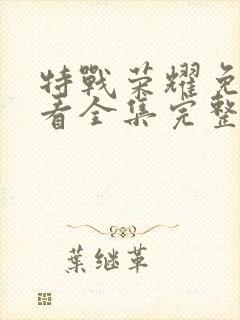 特戰荣耀免
看全集完整
葉继革